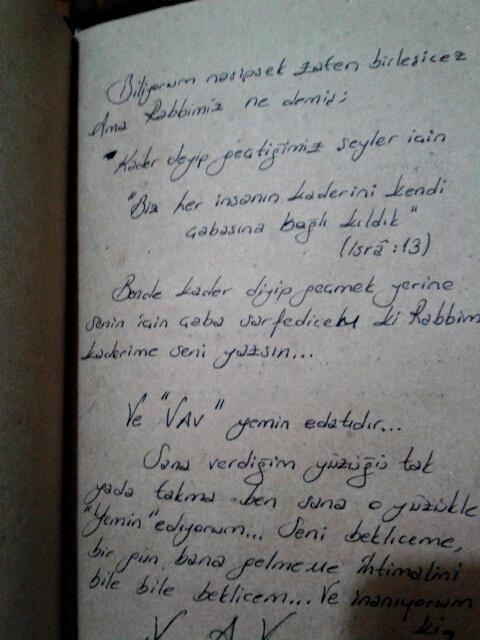 Biliyorum nasipsek zaten birleşicez
Ama Rabbimiz ne demiş;
"Kader deyip geçtiğimiz şeyler için
"Biz her insanın kaderini kendi
çabasına bağlı kıldık"
(İsrâ :13)
Bende kader diyip geçmek yerine
senin için çaba sarfedicem ki Rabbim
kaderime seni yazsın...
Ve "VAV" yemin edatıdır...
Sana verdiğim yüzüğü tak
yada takma ben sana o yüzükle
"Yemin" ediyorum... Seni beklicem,
bir gün bana gelmeme ihtimalini
bile bile beklicem... Ve inanıyorum
V A V